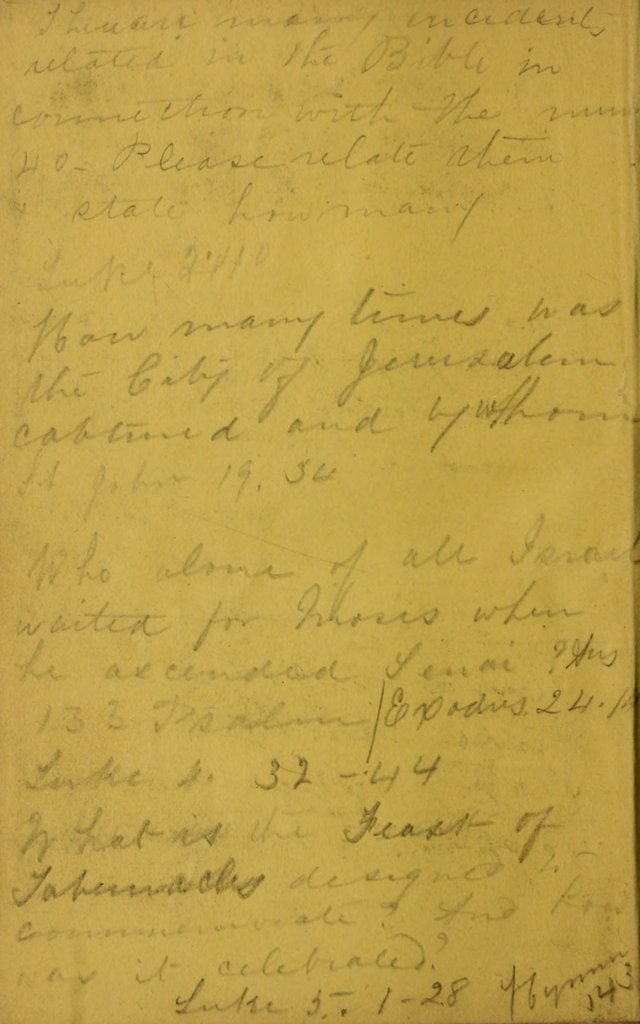 There are many incidents
related in the Bible in
connection with the num
40 - Please relate them
& state how many
Luke
How many times was
the City of Jerusalem
captured and by whom
St John 19. 34
Who alone of all Israel
waited for Moses when
he ascended Senai? Ans
133 Psalm / Exodus 24.
Luke 4. 32 - 44
What is the Feast of
Tabernacles designed to
commemorate? And how
was it celebrated?
Luke 5. 1 - 28 Hymn
143